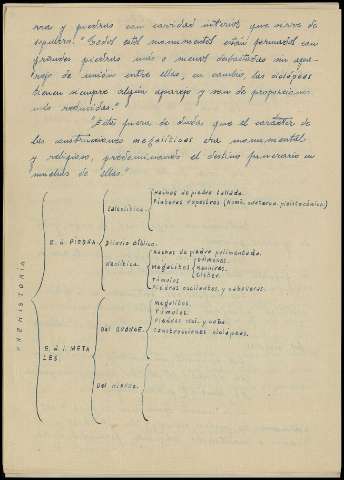 rras y piedras con cavidad interior que servía de
sepulcro." Todos estos monumentos están formados con
grandes piedras más o menos desbastadas sin apa-
rejo de unión entre ellas, en cambio, las ciclópeas
tienen siempre algún aparejo y son de proporciones
más reducidas."
"Está fuera de dudas que el carácter de
las construcciones megalíticas era monumental
y religioso, predominando el destino funerario en
muchas de ellas."
PREHISTORIA
E. d. PIEDRA
Paleolítica
Hachas de piedra tallada.
Pinturas rupestres
Diluvio bíblico.
Neolítica
Hachas de piedra pulimentada.
Megalitos
Dólmenes.
Menhires.
Túmulos
Piedras oscilantes y caballeras.
E. d. l. META
LES.
Del BRONCE.
Megalitos.
Túmulos.
Piedras osci. y caba.
Construcciones ciclópeas.
Del Hierro.